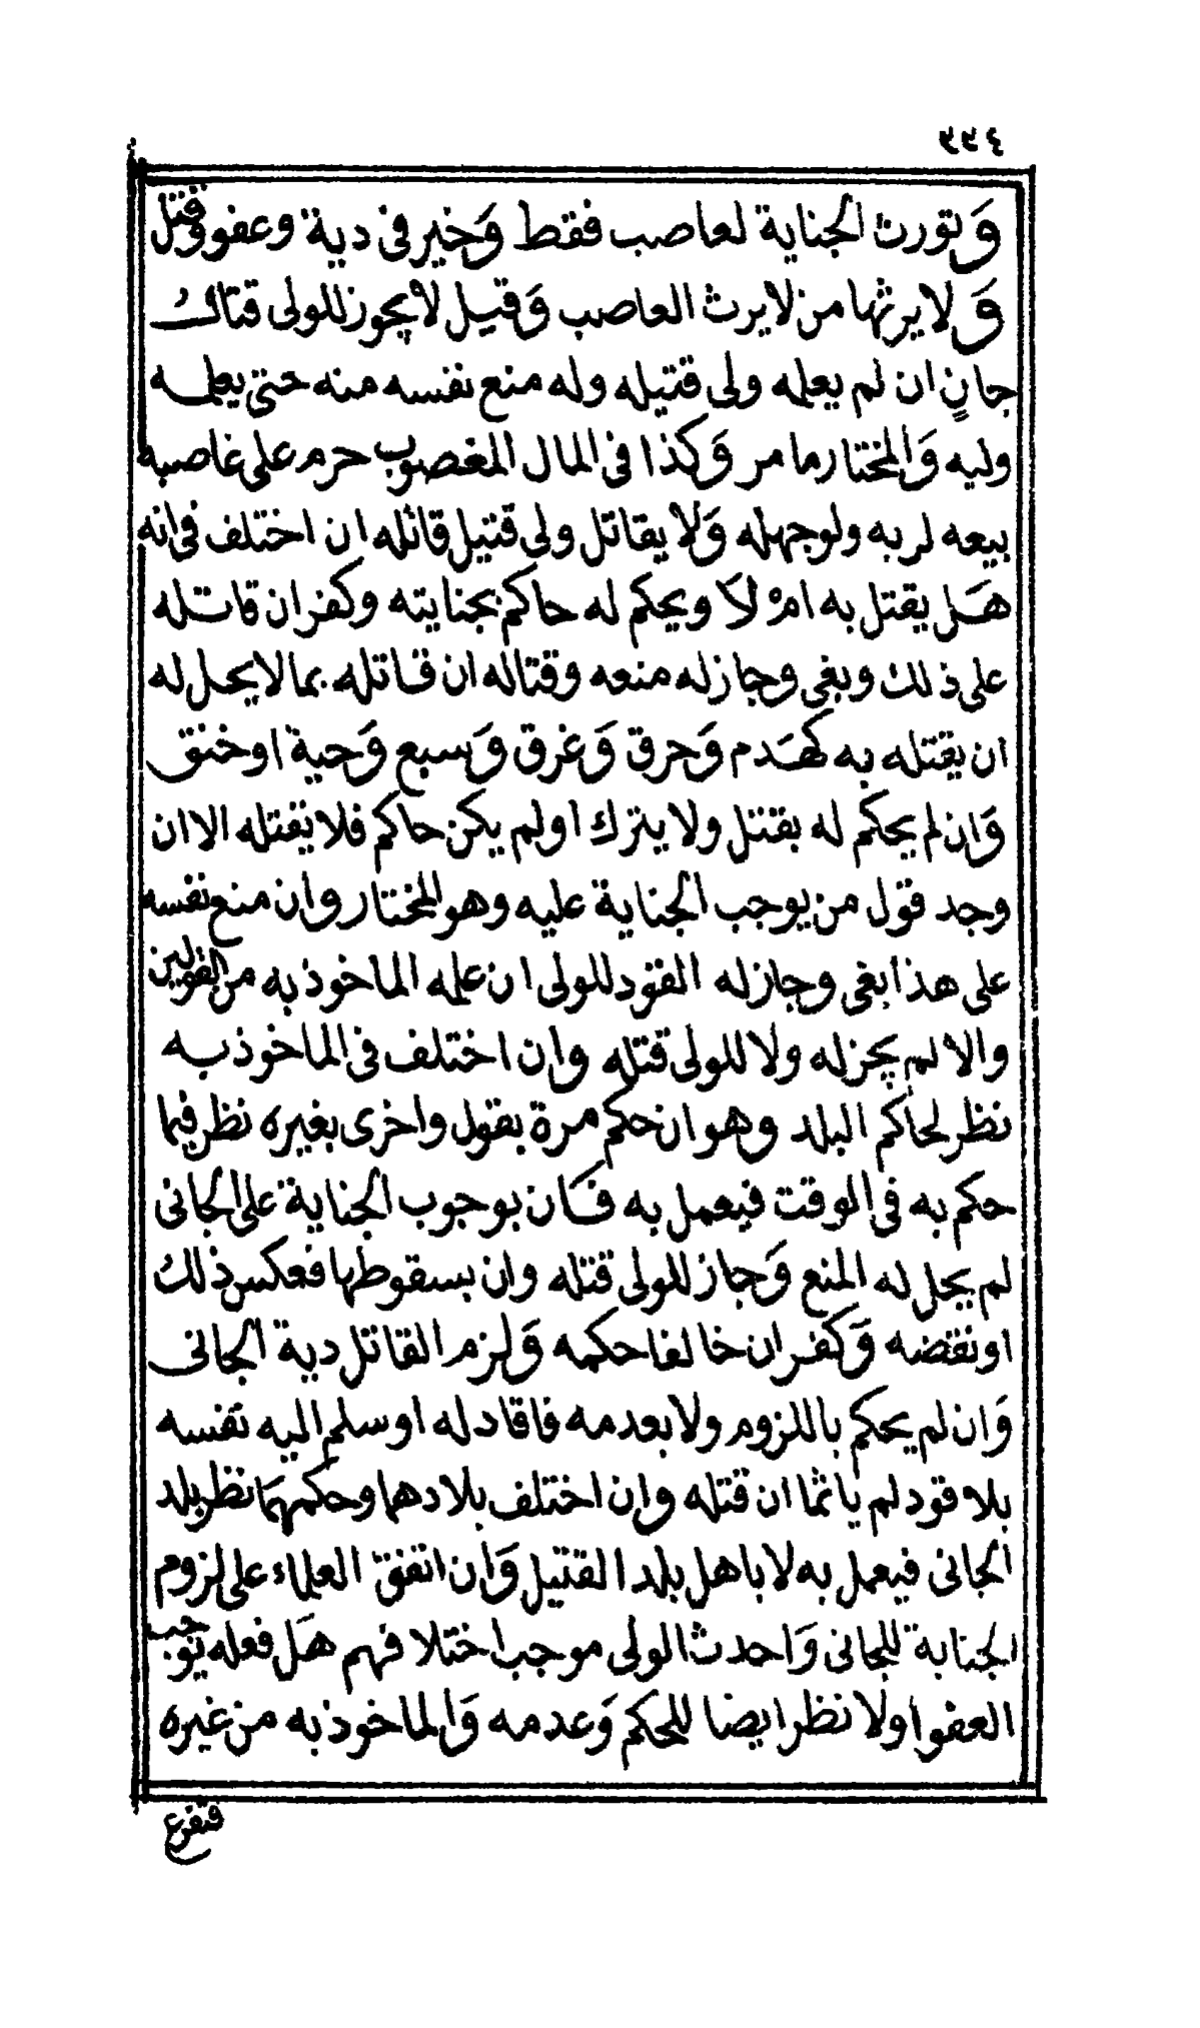 ٤٩٩
وَتورث الجناية لعاصب فقط وَخير فى دية وعفو وقتل
وَلا يرثها من لا يرث العاصب وَقيل لا يجوز للولى قتال
جانٍ ان لم يعلمه ولى قتيله وله منع نفسه منه حتى يعلمه
وليه وَالمختار ما مر وَكذا فى المال المغصوب حرم على غاصبه
بيعه لربه ولو جهله وَلا يقاتل ولى قتيل قاتله ان اختلف فى انه
هَل يقتل به امْ لاَ ويحكم له حاكم بجنايته وكفر ان قاتله
على ذلك وبغى وجاز له منعه وقتاله ان قاتله بما لا يحل له
ان يقتله به كهَدم وَحرق وَغرق وَسبع وَحية او خنق
وَان لم يحكم له بقتل ولا بترك او لم يكن حاكم فلا يقتله الا ان
وجد قول من يوجب الجناية عليه وهو المختار وان منع نفسه
على هذا بغى وجاز له القود للولى ان علمه الماخوذ به من القولين
والا لم يجز له ولا للولى قتله وان اختلف فى الماخوذ به
نظر لحاكم البلد وهو ان حكم مرة بقول واخرى بغيره نظر فيما
حكم به فى الوقت فيعمل به فكان بوجوب الجناية على الجانى
لم يحل له المنع وَجاز للولى قتله وان بسقوطها فعكس ذلك
او نقضه وَكفر ان خالفا حكمه وَلزم القاتل دية الجانى
وَان لم يحكم باللزوم ولا بعدمه فاقاد له او سلم اليه نفسه
بلا قود لم ياثما ان قتله وان اختلف بلادهما وحكمهما نظر بلد
الجانى فيعمل به لا باهل بلد القتيل وَان اتفق العلماء على لزوم
الجناية للجانى وَاحدث الولى موجب اختلافهم هَل فعله يوجب
العفو اولا نظر ايضا للحكم وَعدمه وَالماخوذ به من غيره
فتفرع